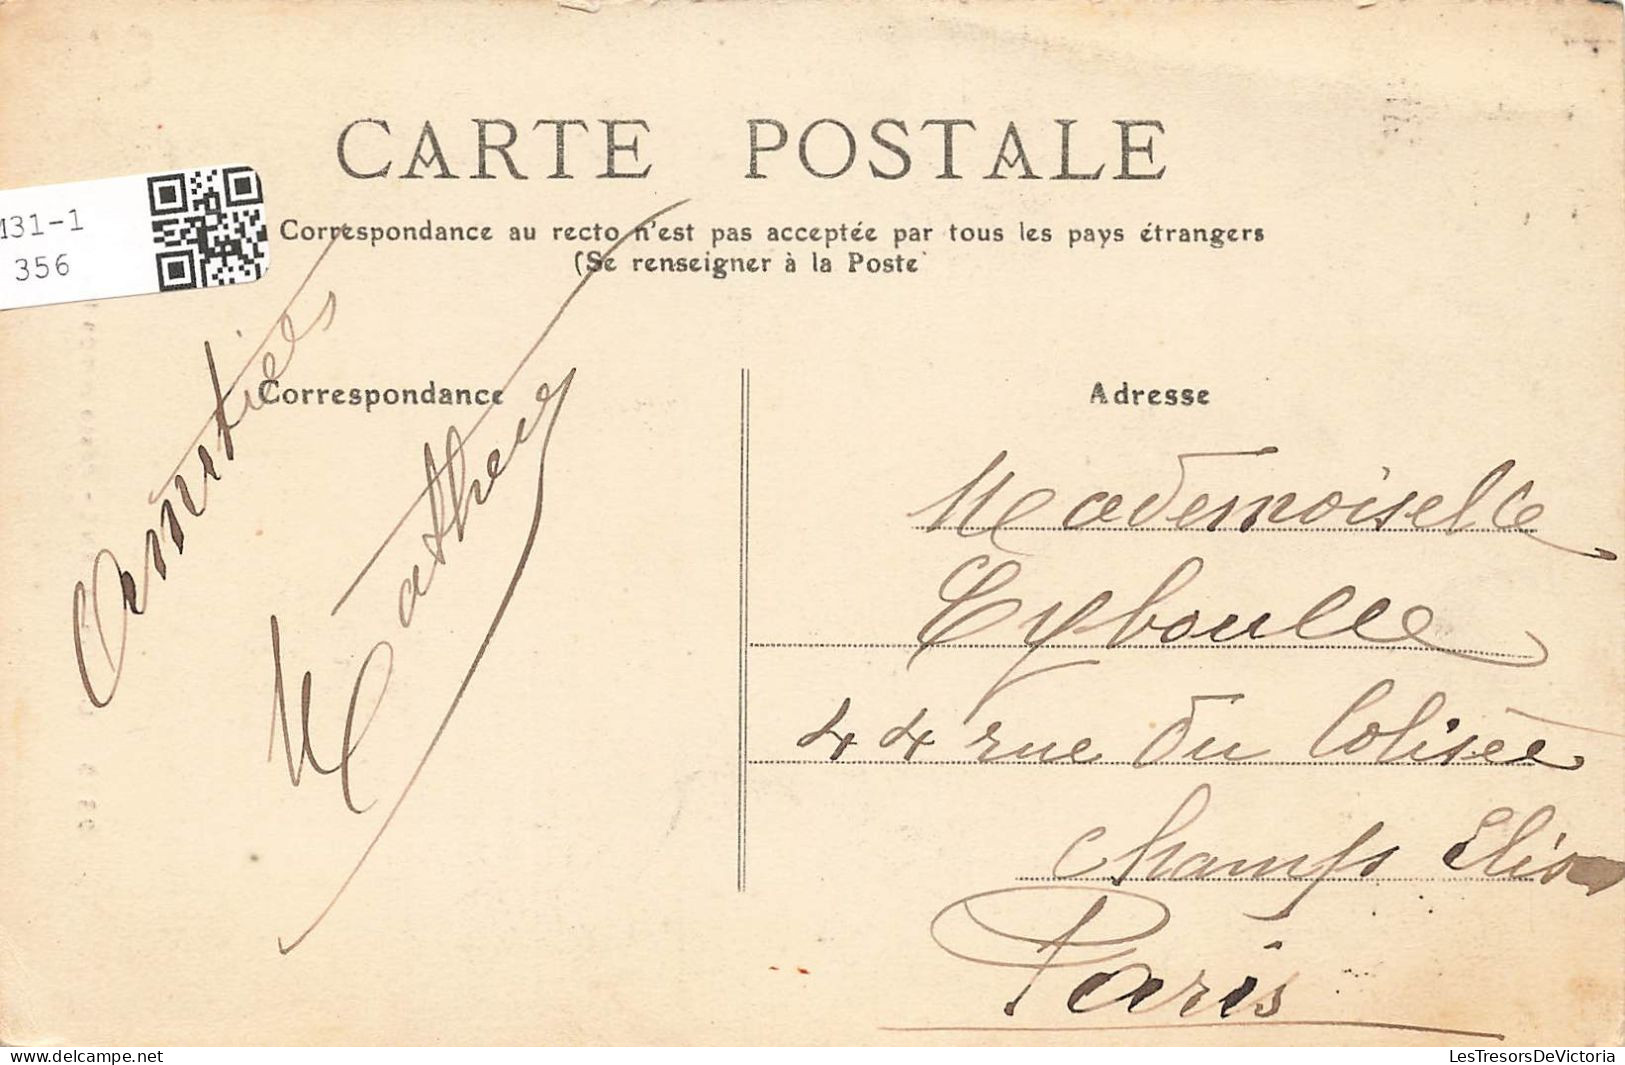 CARTE POSTALE
Correspondance au recto n'est pas acceptée par tous les pays étrangers
(Se renseigner à la Poste
M31-1
356
Correspondance
Amitiés
Adresse
Mademoiselle
Eyboulle
44 rue du Colisée
Champs Elis
Paris
LesTresorsDeVictoria
delcampe.net